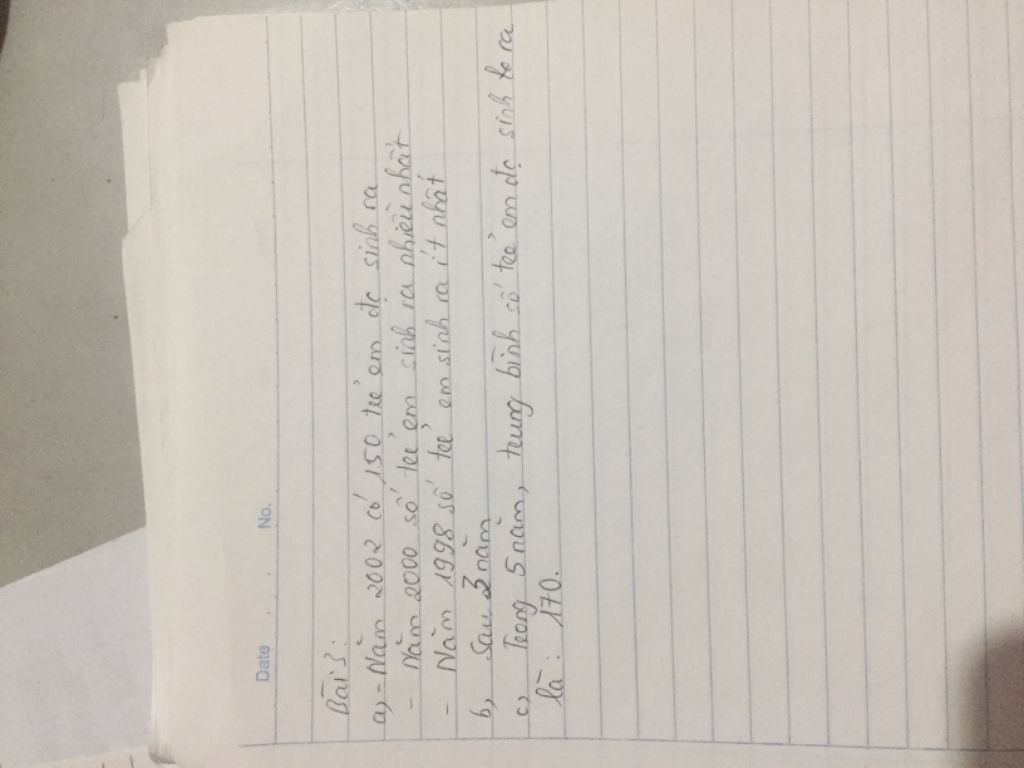 Date . . No.
Bài 3:
a, - Năm 2002 có 150 trẻ em đc sinh ra
- Năm 2000 số trẻ em sinh ra nhiều nhất
- Năm 1998 số trẻ em sinh ra ít nhất
b, Sau 3 năm
c, Trong 5 năm, trung bình số trẻ em đc sinh ra
là: 170.